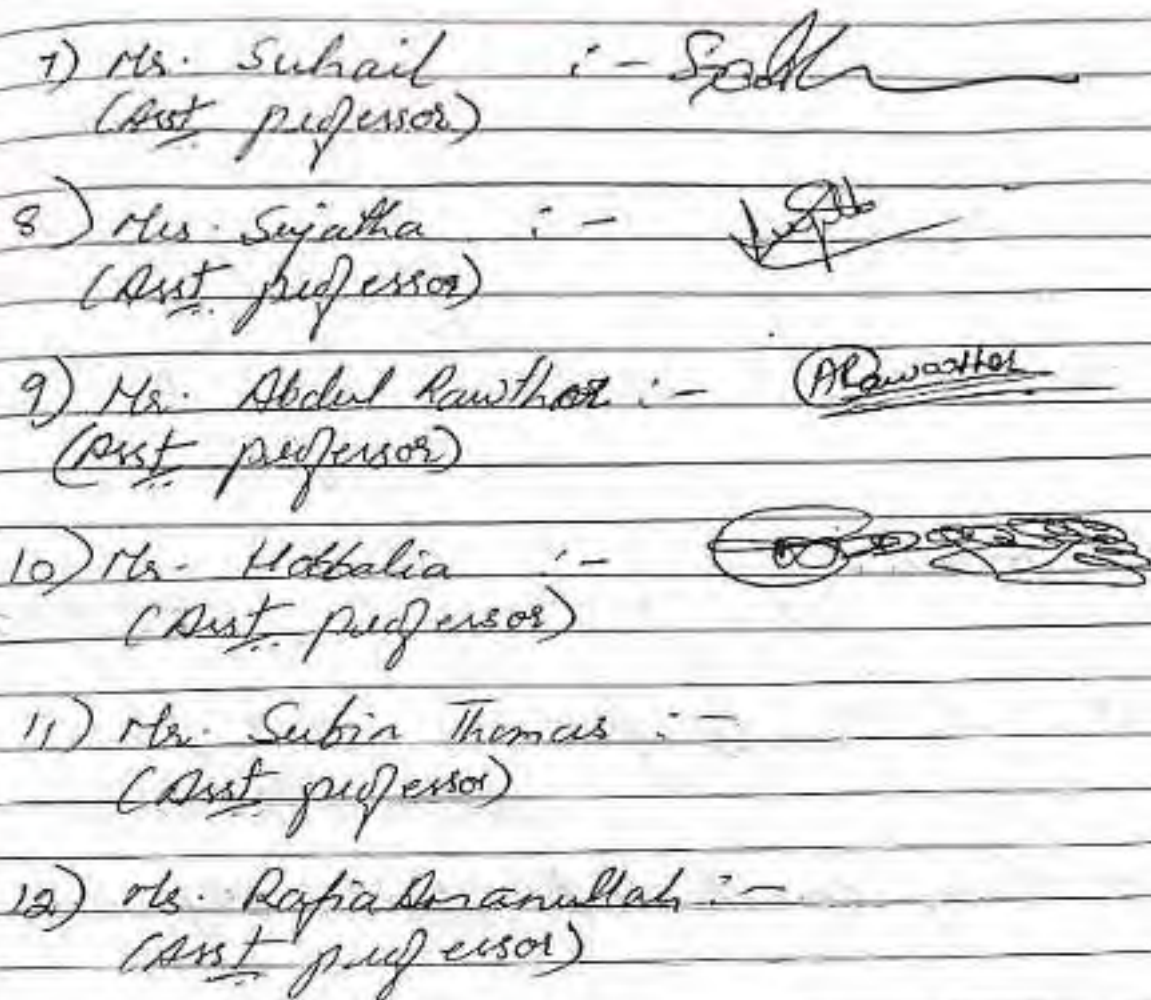 7) Mr. Suhail :-
(Asst professor)
8) Mrs. Sujatha :-
(Asst professor)
9) Mr. Abdul Rawther :- ARawoother
(Asst professor)
10) Mr. Hobbalia :-
(Asst professor)
11) Mr. Subin Thomas :-
(Asst professor)
12) Ms. Rafia Amanullah :-
(Asst professor)